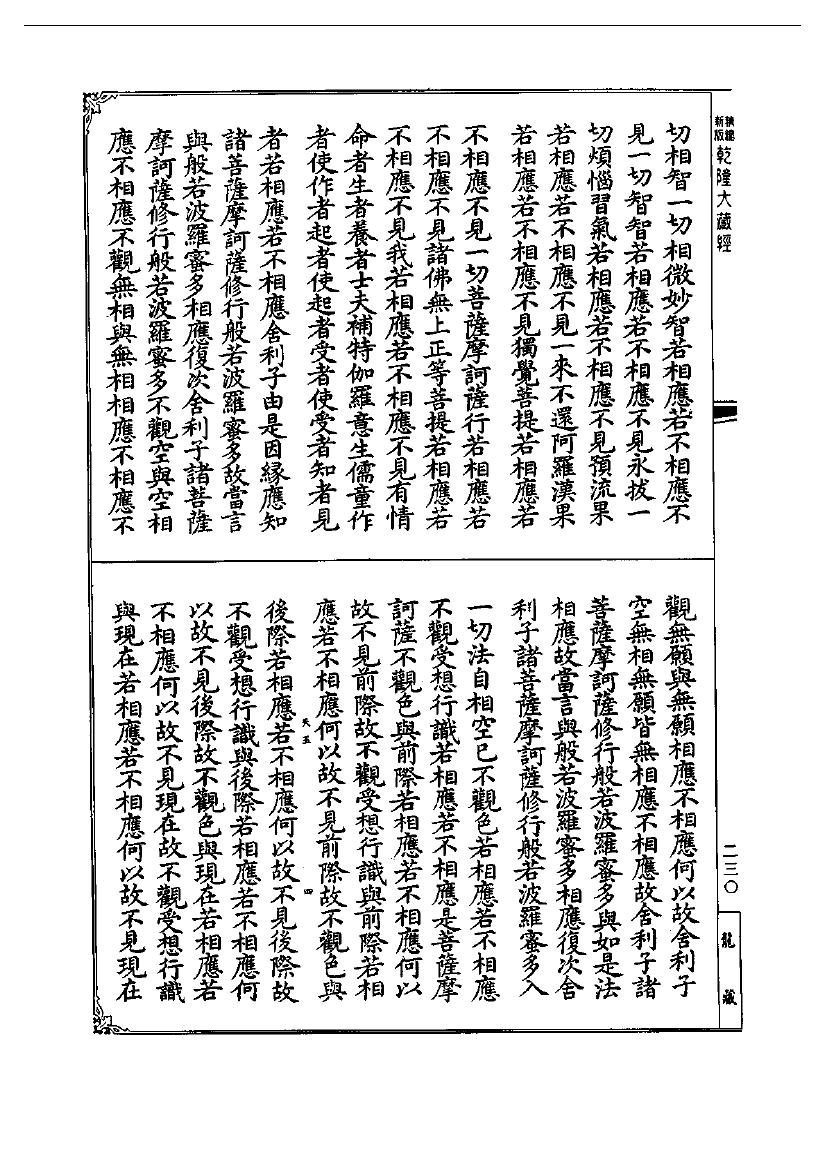 新版
乾隆大藏經
切相智一切相微妙智若相應若不相應不
見一切智智若相應若不相應不見永拔一
切煩惱習氣若相應若不相應不見預流果
若相應若不相應不見一來不還阿羅漢果
若相應若不相應不見獨覺菩提若相應若
不相應不見一切菩薩摩訶薩行若相應若
不相應不見諸佛無上正等菩提若相應若
不相應不見我若相應若不相應不見有情
命者生者養者士夫補特伽羅意生儒童作
者使作者起者使起者受者使受者知者見
者若相應若不相應舍利子由是因緣應知
諸菩薩摩訶薩修行般若波羅蜜多故當言
與般若波羅蜜多相應復次舍利子諸菩薩
摩訶薩修行般若波羅蜜多不觀空與空相
應不相應不觀無相與無相相應不相應不
觀無願與無願相應不相應何以故舍利子
空無相無願皆無相應不相應故舍利子諸
菩薩摩訶薩修行般若波羅蜜多與如是法
相應故當言與般若波羅蜜多相應復次舍
利子諸菩薩摩訶薩修行般若波羅蜜多入
一切法自相空已不觀色若相應若不相應
不觀受想行識若相應若不相應是菩薩摩
訶薩不觀色與前際若相應若不相應何以
故不見前際故不觀受想行識與前際若相
應若不相應何以故不見前際故不觀色與
四
後際若相應若不相應何以故不見後際故
不觀受想行識與後際若相應若不相應何
以故不見後際故不觀色與現在若相應若
不相應何以故不見現在故不觀受想行識
與現在若相應若不相應何以故不見現在
二三〇
龍藏